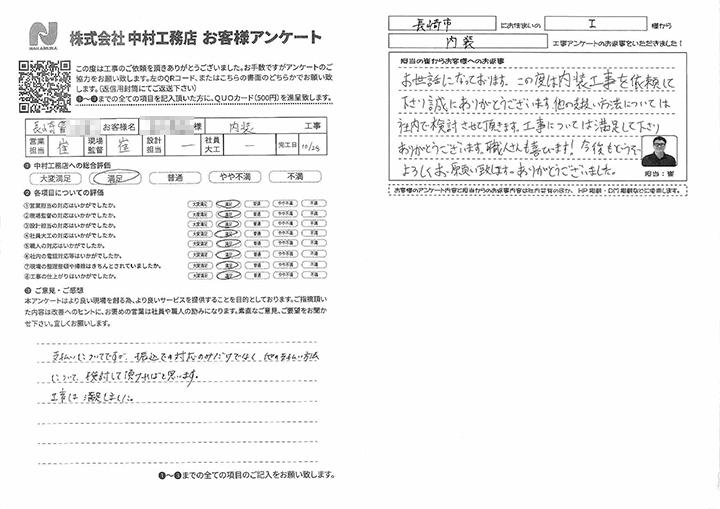 NAKAMURA
株式会社 中村工務店 お客様アンケート
この度は工事のご依頼を頂きありがとうございました。お手数ですがアンケートのご
協力をお願い致します。左のQRコード、またはこちらの書面のどちらかでお願い致
します。(返信用封筒にてご返送下さい)
❶〜❸までの全ての項目を記入頂いた方に、QUOカード(500円)を進呈致します。
お客様名 様 内装 工事
営業担当 崔 現場監督 崔 設計担当 ー 社員大工 ー 完工日 10/25
❶ 中村工務店への総合評価
大変満足 満足 普通 やや不満 不満
❷ 各項目についての評価
①営業担当の対応はいかがでしたか。 大変満足 満足 普通 やや不満 不満
②現場監督の対応はいかがでしたか。 大変満足 満足 普通 やや不満 不満
③設計担当の対応はいかがでしたか。 大変満足 満足 普通 やや不満 不満
④社員大工の対応はいかがでしたか。 大変満足 満足 普通 やや不満 不満
⑤職人の対応はいかがでしたか。 大変満足 満足 普通 やや不満 不満
⑥社内の電話対応等はいかがでしたか。 大変満足 満足 普通 やや不満 不満
⑦現場の整理整頓や掃除はきちんとされていましたか。 大変満足 満足 普通 やや不満 不満
⑧工事の仕上がりはいかがでしたか。 大変満足 満足 普通 やや不満 不満
❸ ご意見・ご感想
本アンケートはより良い現場を創る為、より良いサービスを提供することを目的としております。ご指摘頂い
た内容は改善へのヒントに、お褒めの言葉は社員や職人の励みになります。素直なご意見、ご要望をお聞か
せ下さい。宜しくお願いします。
支払いについてですが、振込での対応のみだけでなく、他の支払い方法
について、検討して頂ければと思います。
工事は満足しました。
❶〜❸までの全ての項目のご記入をお願い致します。
長崎市 にお住まいの I 様から
内装 工事アンケートのお返事をいただきました!
担当の崔からお客様へのお返事
お世話になっております。この度は内装工事を依頼して
下さり誠にありがとうございます。他の支払い方法については
社内で検討させて頂きます。工事については満足して下さり
ありがとうございます。職人さんも喜びます!今後もどうぞ
よろしくお願い致します。ありがとうございました。
担当:崔
お客様のアンケート内容と担当からのお返事内容は社内掲覧のほか、HP掲載・DM掲載などに使用します。